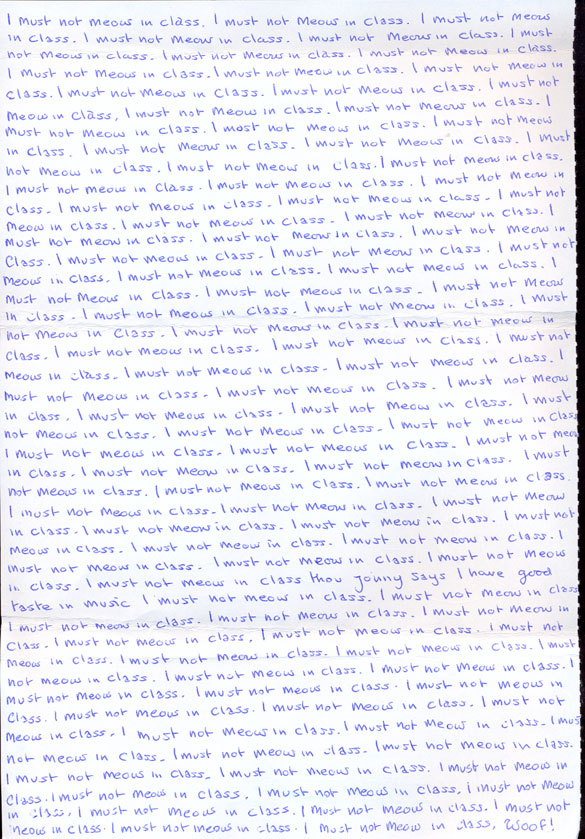 I must not meow in class. I must not Meow in class. I must not meow
in class. I must not meow in class. I must not Meow in class. I must
not meow in class. I must not meow in class. I must not meow in class.
I must not meow in class. I must not meow in class. I must not meow in
class. I must not meow in class. I must not meow in class. I must not
meow in class, I must not meow in class. I must not meow in class. I
must not meow in class. I must not meow in class. I must not meow
in class. I must not meow in class. I must not meow in class. I must
not meow in class. I must not meow in class. I must not meow in class.
I must not meow in class. I must not meow in class. I must not meow in
class. I must not meow in class. I must not meow in class. I must not
meow in class. I must not meow in class. I must not meow in class. I
must not meow in class. I must not meow in class. I must not meow in
class. I must not meow in class. I must not meow in class. I must not
meow in class. I must not meow in class. I must not meow in class. I
must not meow in class. I must not meow in class. I must not meow
in class. I must not meow in class. I must not meow in class. I must
not meow in class. I must not meow in class. I must not meow in
class. I must not meow in class. I must not meow in class. I must not
meow in class. I must not meow in class. I must not meow in class. I
must not meow in class. I must not meow in class. I must not meow
in class. I must not meow in class. I must not meow in class. I must
not meow in class. I must not meow in class. I must not meow in class
I must not meow in class. I must not meow in class. I must not meow
in class. I must not meow in class. I must not meow in class. I must
not meow in class. I must not meow in class. I must not meow in class.
I must not meow in class. I must not meow in class. I must not meow
in class. I must not meow in class. I must not meow in class. I must not
meow in class. I must not meow in class. I must not meow in class. I
must not meow in class. I must not meow in class. I must not meow
in class. I must not meow in class thou Jonny says I have good
taste in music I must not meow in class. I must not meow in class
I must not meow in class. I must not meow in class. I must not meow in
class. I must not meow in class. I must not meow in class. I must not
meow in class. I must not meow in class. I must not meow in class. I must
not meow in class. I must not meow in class. I must not meow in class. I
must not meow in class. I must not meow in class. I must not meow in
class. I must not meow in class. I must not meow in class. I must not
meow in class. I must not meow in class. I must not meow in class. I must
not meow in class. I must not meow in class. I must not meow in class.
I must not meow in class. I must not meow in class. I must not meow in
class. I must not meow in class. I must not meow in class. I must not meow
in class. I must not meow in class. I must not meow in class. I must not
meow in class. I must not meow in class. I must not meow in class, Woof!